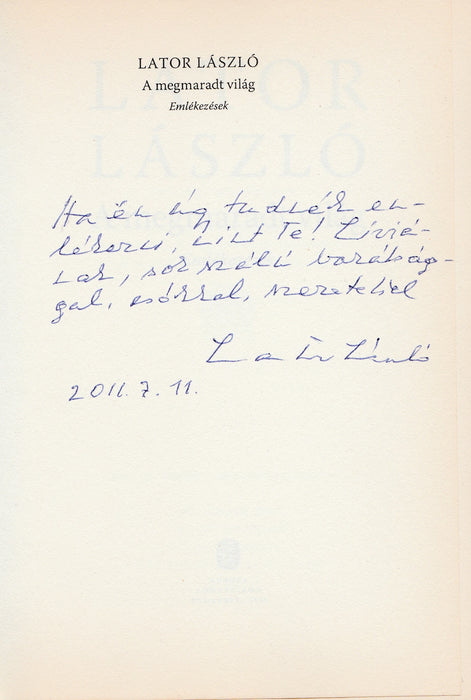 LATOR LÁSZLÓ
A megmaradt világ
Emlékezések
Ha én úgy tudnék em-
lékezni, mint Te! Líviá-
nak, sok szálú barátság-
gal, csókkal, szeretettel
Lator László
2011. 7. 11.